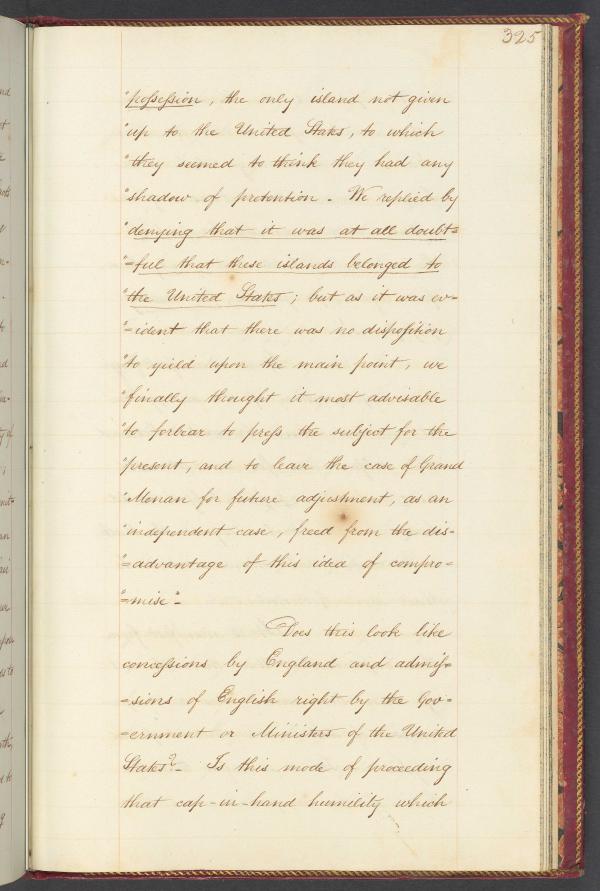 325
"possession, the only island not given
"up to the United States, to which
"they seemed to think they had any
"shadow of pretention. We replied by
"denying that it was at all doubt=
"=ful that these islands belonged to
"the United States; but as it was ev=
"=ident that there was no disposition
"to yield upon the main point, we
"finally thought it most advisable
"to forbear to press the subject for the
"present, and to leave the case of Grand
"Menan for future adjustment, as an
"independent case, freed from the dis=
"=advantage of this idea of compro=
"=mise"-
Does this look like
concessions by England and admis=
=sions of English right by the Gov=
=ernment or Ministers of the United
States? - Is this mode of proceeding
that cap-in-hand humility which